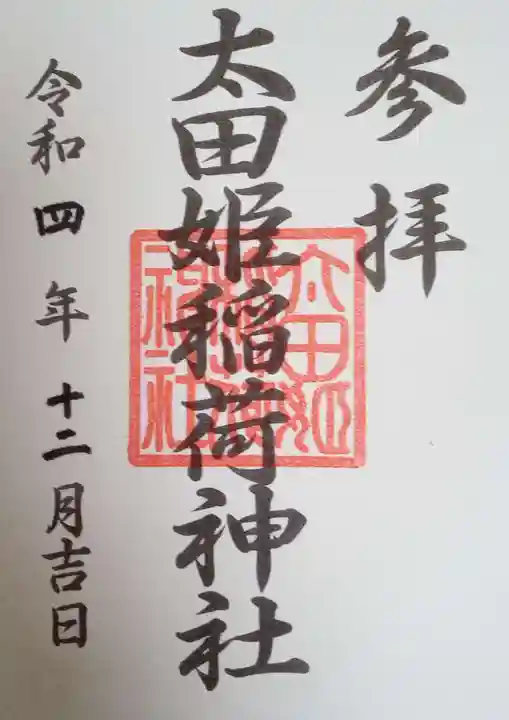 参拝
太田姫稲荷神社
令和四年十二月吉日
太田姫
稲荷
神社